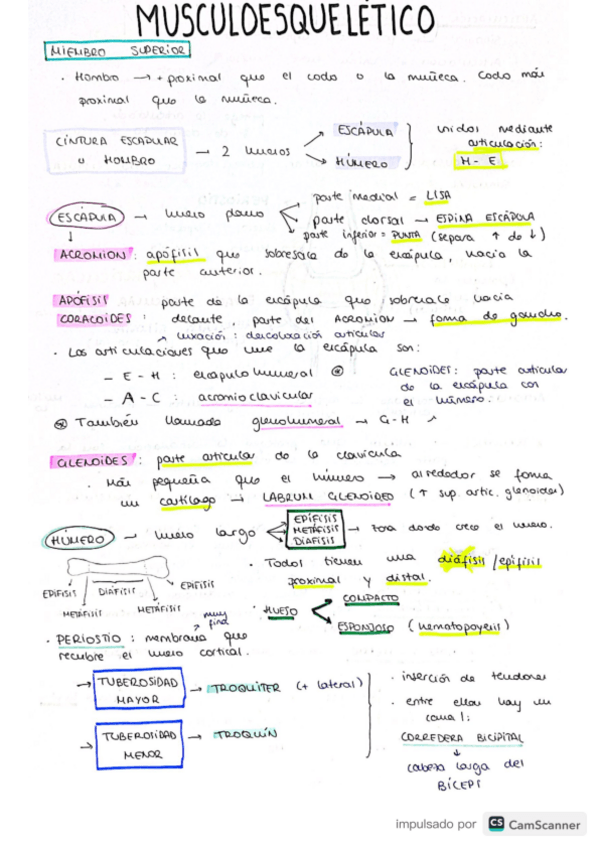 MUSCULOESQUELÉTICO
MIEMBRO SUPERIOR
· Hombro → + proximal que el codo o la muñeca. Codo más
proximal que la muñeca.
CINTURA ESCAPULAR
u HOMBRO
→ 2 huesos
ESCÁPULA
HÚMERO
unidos mediante
articulación:
H - E
ESCÁPULA → hueso plano
parte medial = LISA
parte dorsal → ESPINA ESCÁPULA
parte inferior = PUNTA (separa ↑ de ↓)
ACROMION: apófisis que sobresale de la escápula, hacia la
parte anterior.
APÓFISIS
CORACOIDES:
parte de la escápula que sobresale hacia
delante, parte del ACROMION → forma de gancho.
luxación: descolocación articular
· Las articulaciones que une la escápula son:
- E - H : escapulohumeral @
- A - C : acromioclavicular
GLENOIDES: parte articular
de la escápula con
el húmero.
@ También llamada glenohumeral → G-H
GLENOIDES: parte articular de la clavícula
· Más pequeña que el húmero → alrededor se forma
un cartílago → LABRUM GLENOIDEO (↑ sup. artic. glenoides)
HÚMERO → hueso largo
EPÍFISIS
METÁFISIS
DIÁFISIS
→ zona donde crece el hueso.
EPIFISIS
DIÁFISIS
EPIFISIS
METÁFISIS
METÁFISIS
· Todos tienen una diáfisis / epífisis
proximal y distal.
· HUESO
COMPACTO
ESPONJOSO (hematopoyesis)
muy
fina
· PERIOSTIO: membrana que
recubre el hueso cortical.
→ TUBEROSIDAD
MAYOR
→ TROQUITER (+ lateral)
→ TUBEROSIDAD
MENOR
→ TROQUÍN
· inserción de tendones
· entre ellas hay un
canal:
CORREDERA BICIPITAL
↓
cabeza larga del
BÍCEPS
impulsado por CS CamScanner